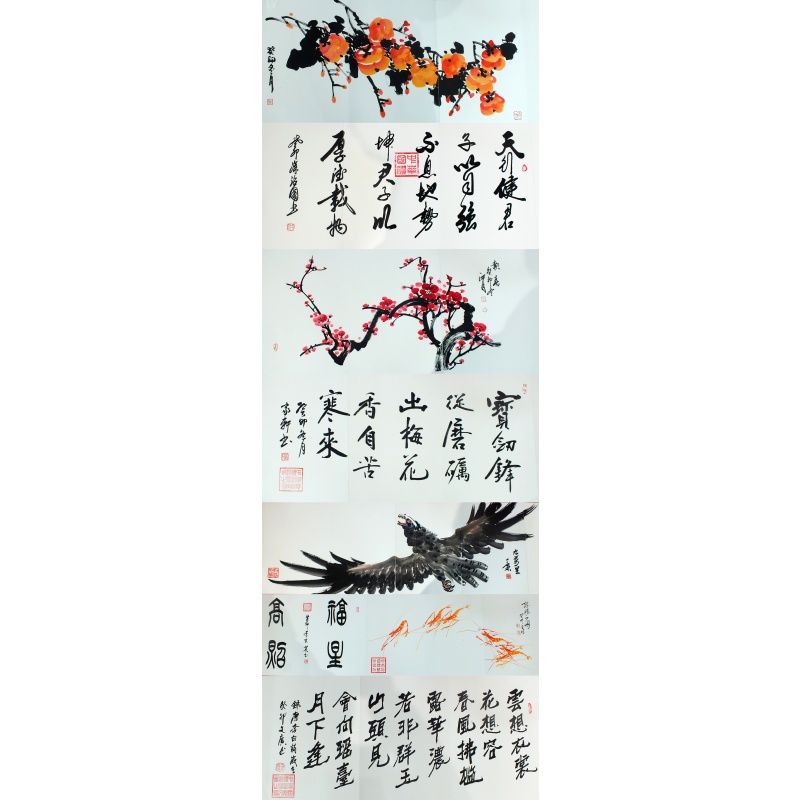 癸卯冬月
天行健君
子以自强
不息地势
坤君子以
厚德载物
寶劍鋒
從磨礪
出梅花
香自苦
寒來
癸卯冬月
福星
高照
雲想衣裳
花想容
春風拂檻
露華濃
若非群玉
山頭見
會向瑶臺
月下逢
錄唐李白詩